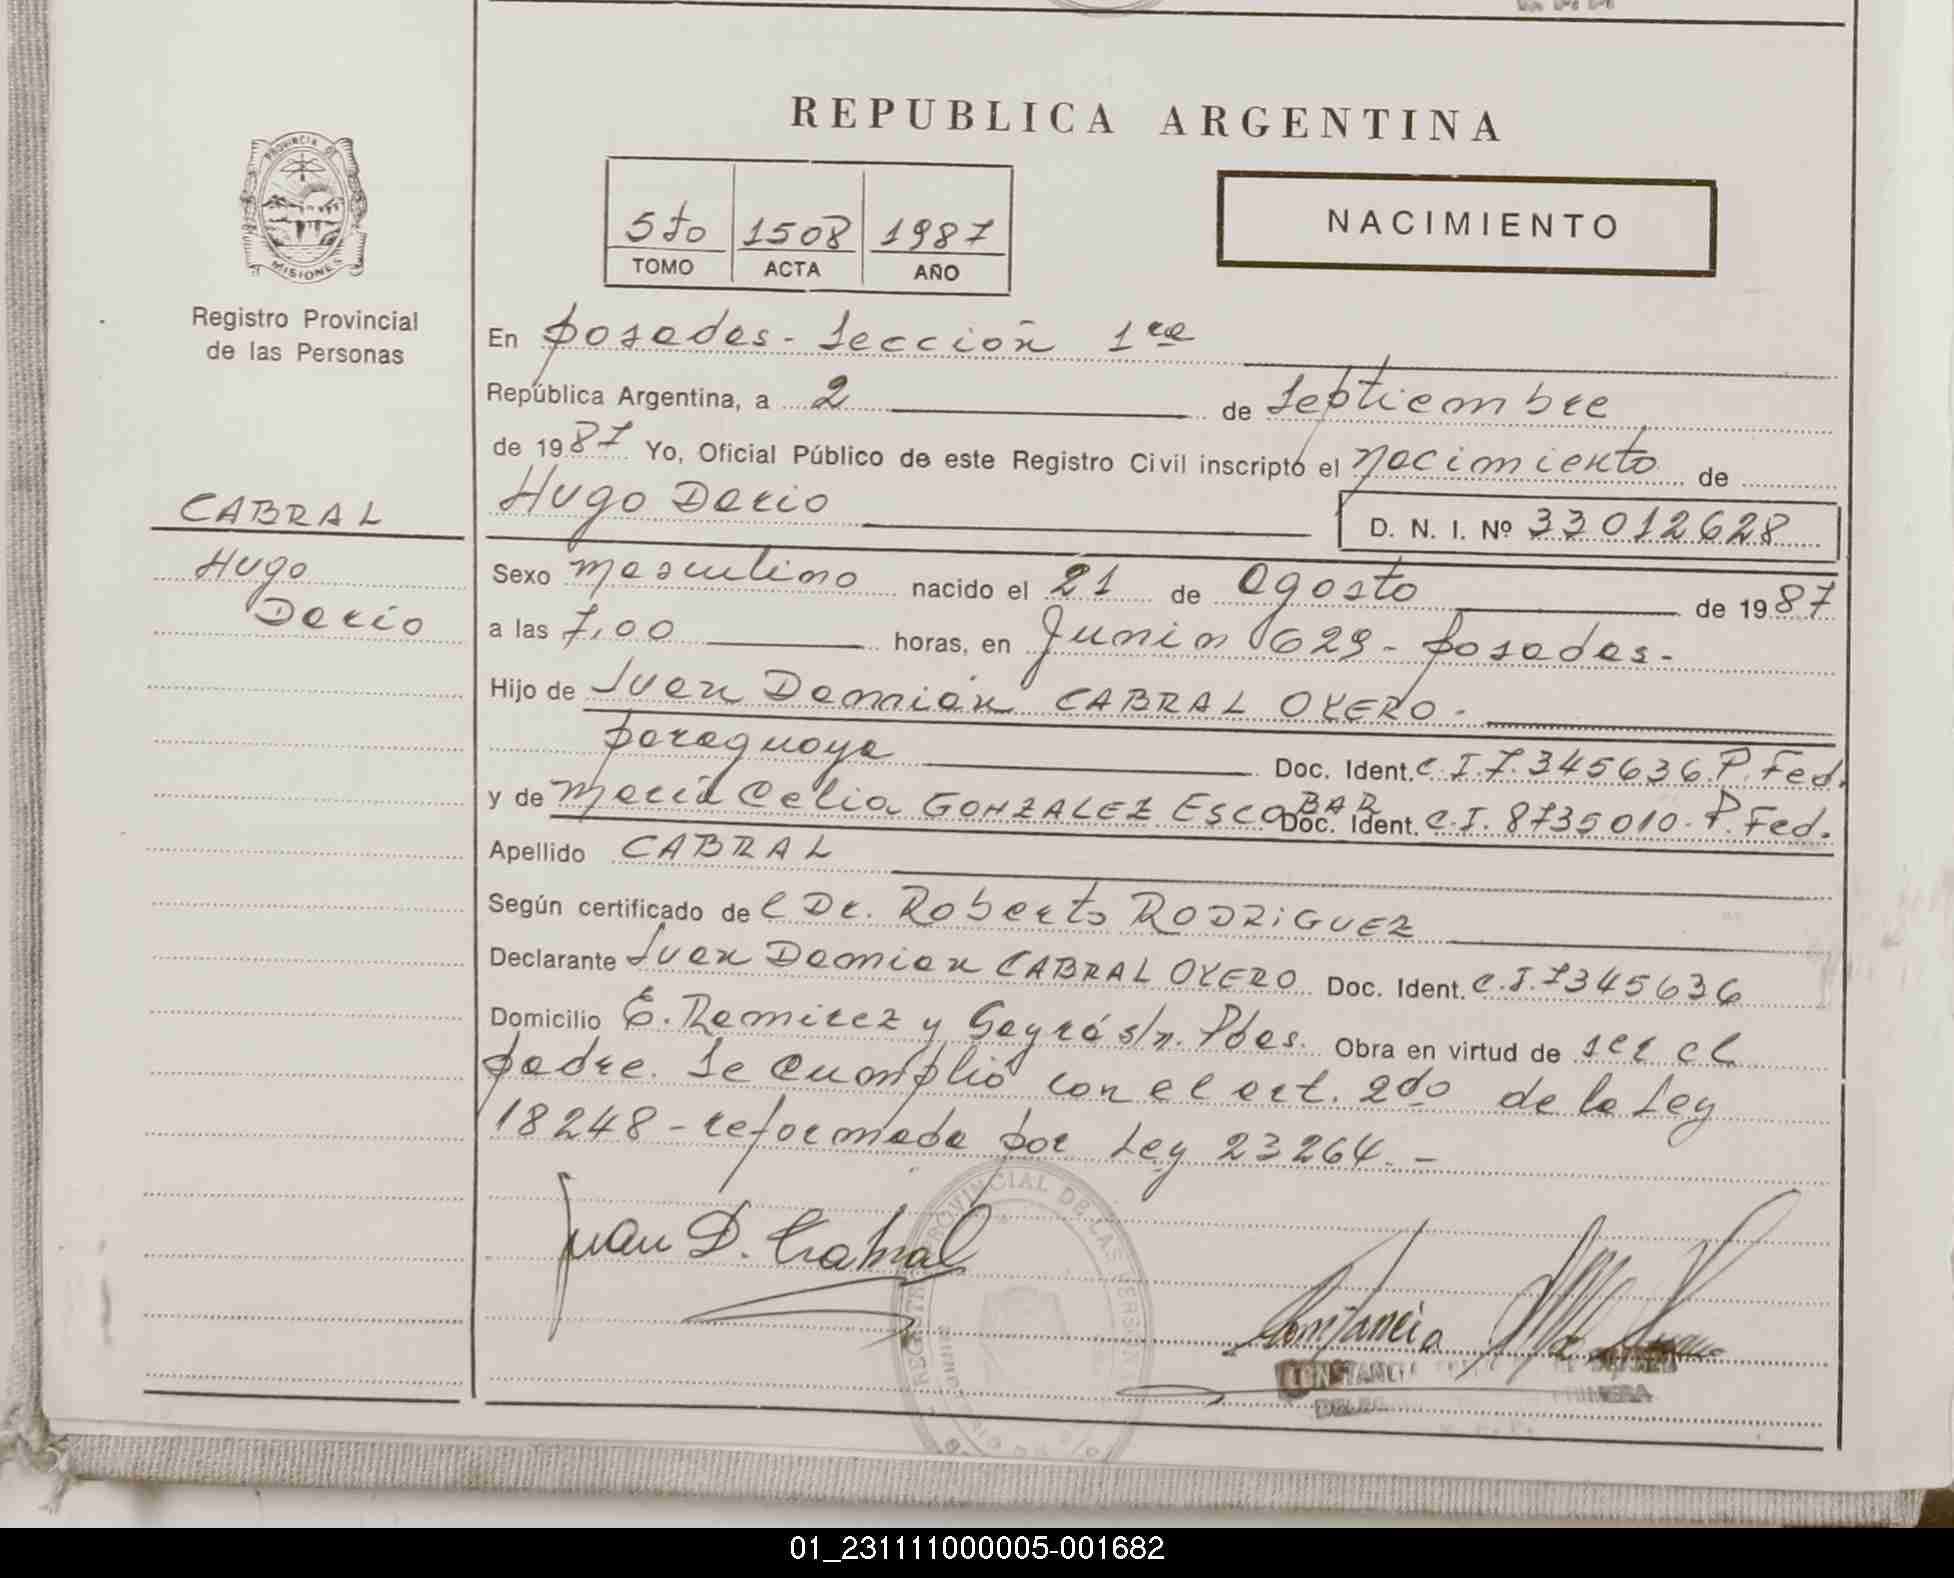 REPUBLICA ARGENTINA
5to 1508 1987
TOMO ACTA AÑO
NACIMIENTO
PROVINCIA DE
MISIONES
Registro Provincial
de las Personas
CABRAL
Hugo
Dario
En Posadas - Sección 1ra
República Argentina, a 2 de Septiembre
de 1987 Yo, Oficial Público de este Registro Civil inscripto el nacimiento de
Hugo Dario D. N. I. Nº 33012628
Sexo masculino nacido el 21 de Agosto de 1987
a las 7,00 horas, en Junin 629 - Posadas -
Hijo de Juan Damián CABRAL OVERO -
paraguaya Doc. Ident. C.I.7.345636.P.Fed.
y de María Celia GONZALEZ ESCOBAR Doc. Ident. C.I. 8735010-P.Fed.
Apellido CABRAL
Según certificado de l Dr. Roberto RODRiGUEZ
Declarante Juan Damian CABRAL OVERO Doc. Ident. C.I.7345636
Domicilio E. Ramirez y s/n. Pdas. Obra en virtud de ser el
padre. Se cumplió con el art. 2do de la Ley
18248 - reformada por Ley 23264. -
Juan D. Cabral
REGISTRO PROVINCIAL DE LAS PERSONAS
Constancia
CONSTANCIA
PRIMERA
01_231111000005-001682